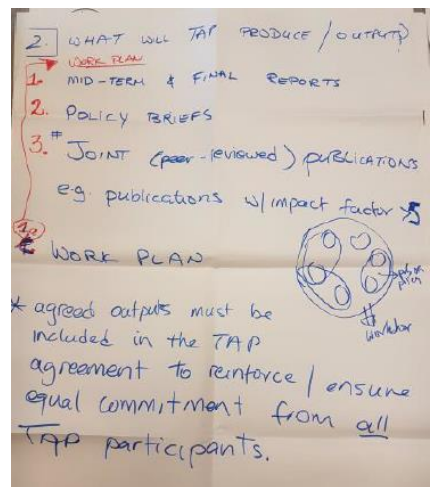 2. WHAT WILL TAP PRODUCE/OUTPUT?
WORK PLAN
1. MID-TERM & FINAL REPORTS
2. POLICY BRIEFS
3. # JOINT (peer-reviewed) PUBLICATIONS
e.g. publications w/impact factor >5
1a
WORK PLAN
* agreed outputs must be
included in the TAP
agreement to reinforce/ensure
equal commitment from all
TAP participants.